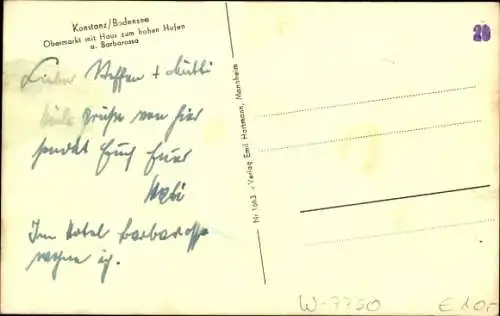 Konstanz/Bodensee
Obermarkt mit Haus zum hohen Hafen
u. Barbarossa
20
Lieber Steffen + Mutti
viele Grüße von hier
sendet Euch Euer
Im Hotel Barbarossa
wohne ich.
Nr 1663 • Verlag Emil Hartmann, Mannheim
W-7750
€ 10,-